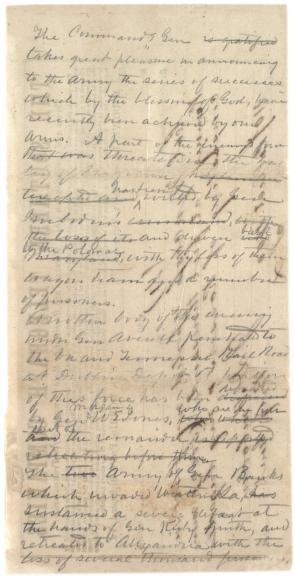 The Command'g Gen is gratified
takes great pleasure in announcing
to the Army the series of successes
which by the blessing of God, have
recently been achieved by our
arms. A part of the enemy's force
that was threatening the Val
ley of
has been by Gen
Imboden's command,
the loss of its and driven back
to the Potomac
Maryland, with the loss of their
wagon train and a number
of prisoners.
Another body of the enemy
under Gen Averell, penetrated to
the Va and Tennessee Rail Road
at Dublin Depot.
of this force has been dispersed
by Gens Morgan & W E Jones, who are in pur
suit of
and the remainder
retreating before them.
The two Army of Gen Banks
which invaded Western La, has
sustained a severe defeat at
the hands of Gen Kirby Smith, and
retreated to Alexandria with the
loss of several thousand prisoners